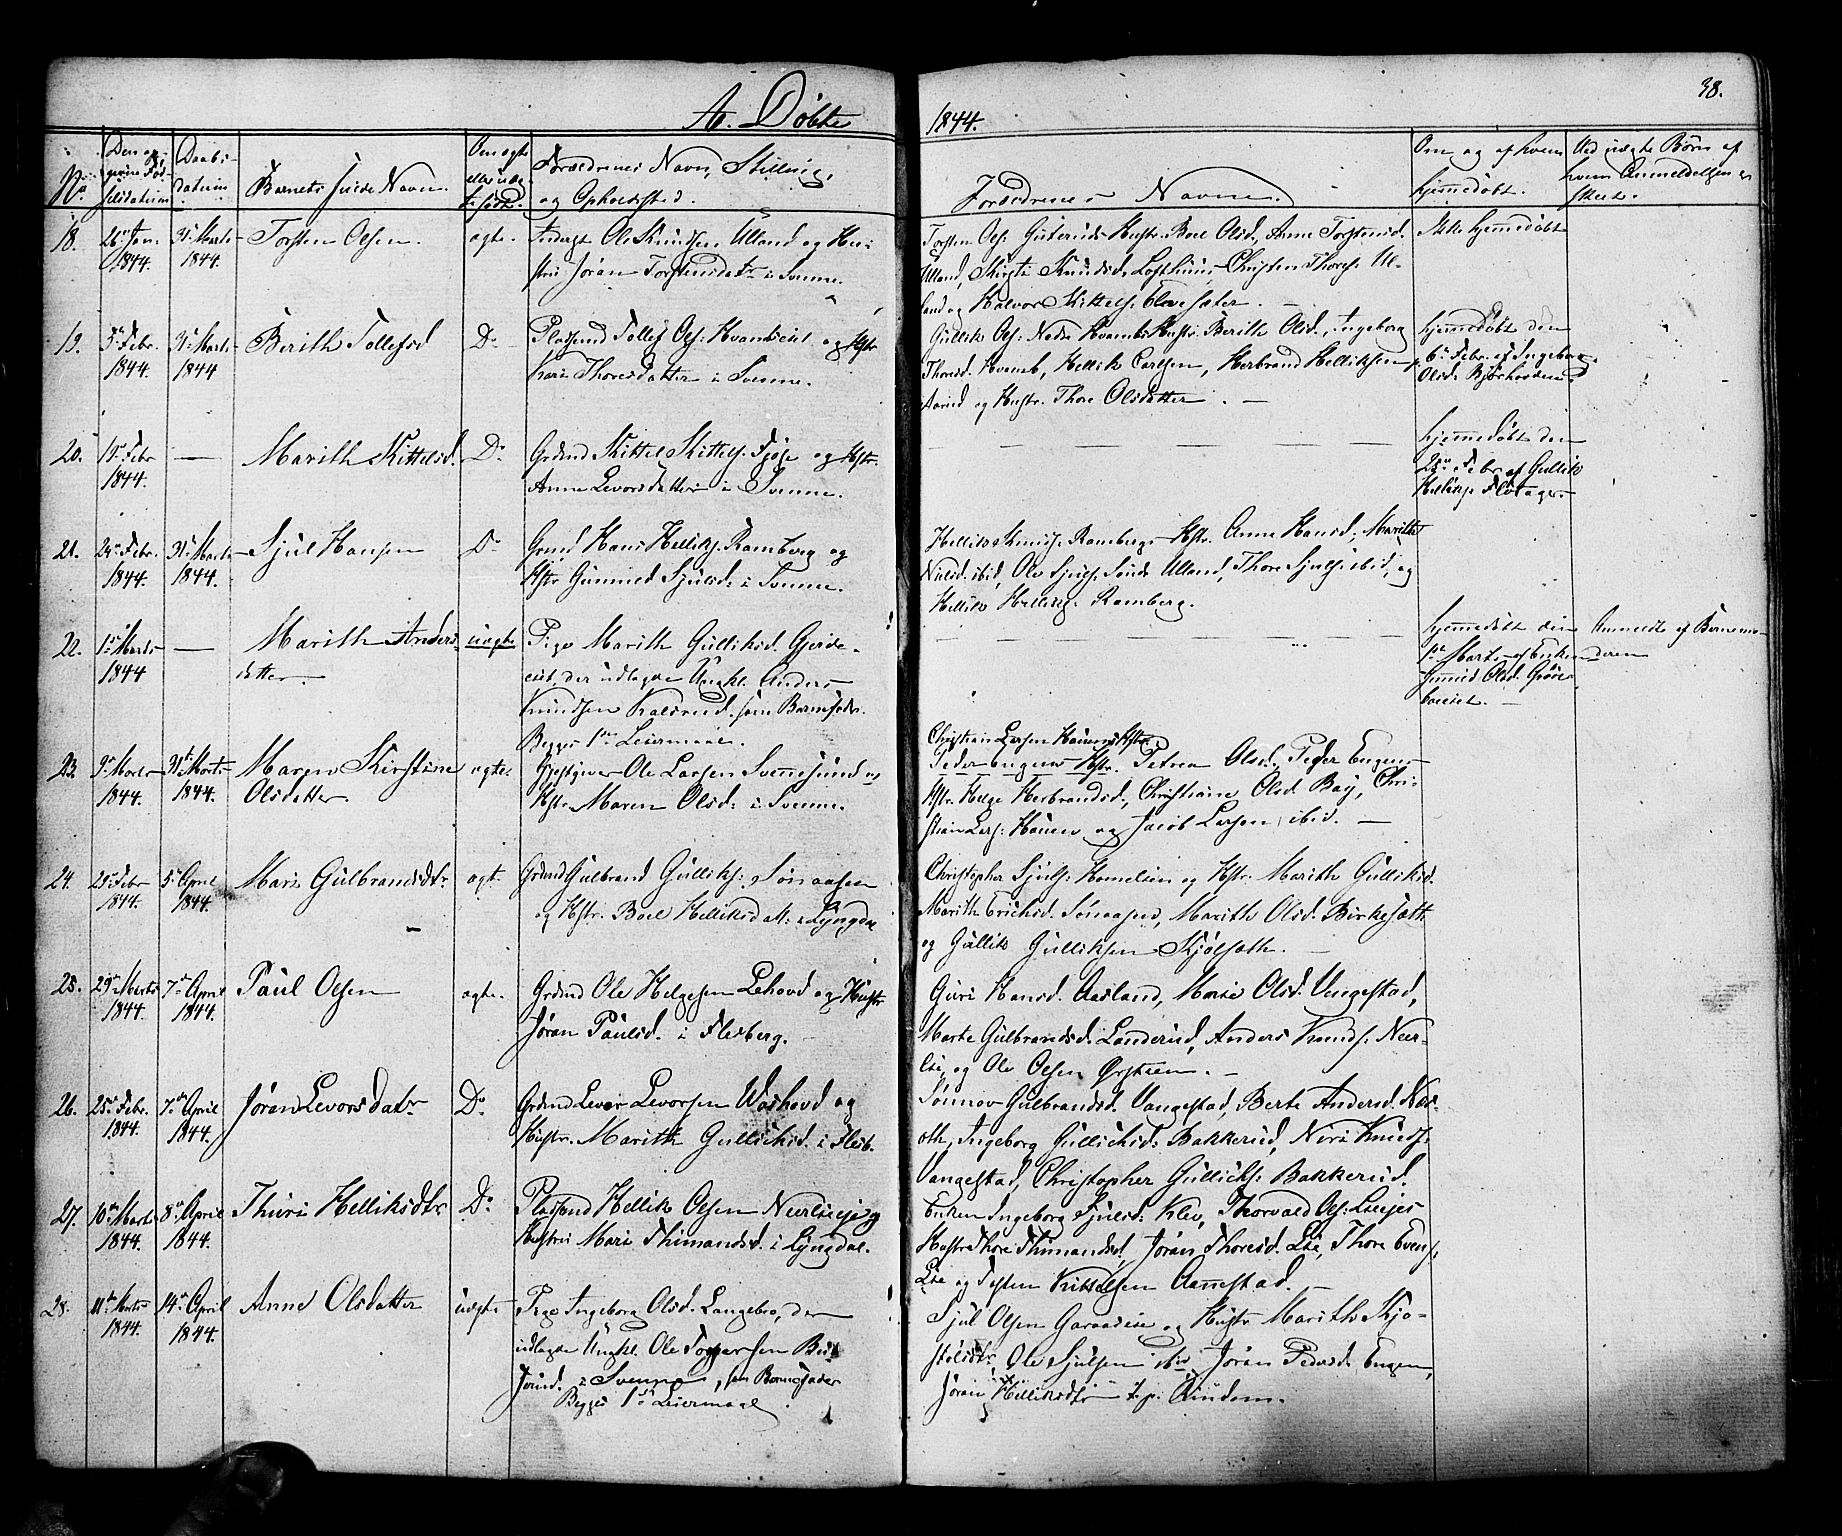 A. Döbte
1844.
38.
No
Den og
givne Föd-
selsdatum
Daabs-
datum
Barnets fulde Navn.
Om ægte
eller uæg-
te födt.
Forældrenes Navn, Stilling,
og Opholdsted.
Faddrenes Navne.
Om og af hvem
hjemmedöbt.
Ved uægte Börn af
hvem Anmeldelsen er
skeet.
18.
26de Jan.
1844.
31te Marts
1844.
Torsten Olsen.
ægte.
Inderst Ole Knudsen Ulland og Hu-
stru Jöran Torstensdatr i Svenne.
Torsten Ols: Guterud Hustr. Boel Olsd., Anne Torstensd.
Ulland, Birgte Knudsd. Lofthuus, Christen Thores: Ul-
land og Halvor Kittels: Elvesæter. —
Ikke hjemmedöbt
19.
3de Febr.
1844.
31te Marts
1844
Berith Tollefsd
Do
Pladsmd Tollef Ols: Kvambseiet og Hstr
Kari Thoresdatter i Svenne.
Gullik Ols: Nedre Kvambs Hustr. Berith Olsd., Ingeborg
Thoresd. Kvamb, Hellik Carlsen, Herbrand Helliksen
Aaried og Hustr. Thore Olsdatter. —
hjemmedöbt den
6te Febr. af Ingeborg
Olsd. Björkaasen
20.
19de Febr
1844.
—
Marith Kittelsd.
Do
Grdmd Kittel Kittels: Fjöse og Hstr.
Anne Levorsdatter i Svenne.
— — — — —
hjemmedöbt den
25de Febr. af Gullik
Helliks: Flotager.
21.
24de Febr.
1844.
31te Marts
1844.
Sjul Hansen
Do
Grmd Hans Helliks: Ramberg og
Hstr Gunnild Sjulsd: i Svenne.
Hellik Knuds: Rambergs Hstr. Anne Hansd., Marith
Nielsd. ibid, Ole Sjuls: Söndr Ulland, Thore Sjuls: ibid, og
Hellik Helliks: Ramberg.
22.
1ste Marts
1844
—
Marith Anders-
datter.
uægte
Pige Marith Gulliksd. Gjerde-
eiet, der udlagde Ungkl. Anders
Knudsen Kalsrud, som Barnefader.
Begges 1ste Leiermaal.
— — — —
hjemmedöbt den
1ste Marts af Enken
Gunnild Olsd. Gröse-
braatet.
Anmeldt af Barnemo-
deren
23.
9de Marts
1844.
31te Marts
1844.
Maren Kirstine
Olsdatter.
ægte
Gjestgiver Ole Larsen Svennesund og
Hstr Maren Olsd: i Svenne.
Christian Larsen Hauens Hstr
Peder Engens Hstr. Petrea Olsd., Peder Engens
Hstr. Helge Herbrandsd., Christiane Olsd Bay, Chri-
stian Lars: Hauen og Jacob Larsen ibid. —
24.
25de Febr
1844.
5te April
1844.
Mari Gulbrandsdtr
ægt.
Grdmd Gulbrand Gulliks: Sönaasen
og Hstr. Boel Helliksdatt: i Lyngdal
Christopher Sjuls: Hamelien og Hstr. Marith Gulliksd.
Marith Erichsd. Sönaasen, Marith Olsd. Birkesætt.
og Gullik Gulliksen Skjölsæth. —
25.
29de Marts
1844.
7de April
1844.
Paul Olsen
ægte.
Grdmd Ole Helgesen Lehovd og Hustr
Jöran Paulsd. i Flesberg. —
Guri Hansd. Aasland, Mari Olsd. Vangestad,
Marte Gulbrandsd. Landerud, Anders Knuds: Neer-
lie, og Ole Olsen Örsteen. —
26.
25de Febr.
1844.
7de April
1844.
Jöran Levorsdatr
Do
Grdmd Levor Levorsen Waahovd og
Hustr. Marith Gullichsd. i Flesb.
Sönnov Gulbrandsd. Vangestad, Berte Andersd. Næs-
eth, Ingeborg Gullichsd: Bakkerud, Niri Knuds:
Vangestad, Christopher Gullichs: Bakkerud.
27.
10de Marts
1844.
8de April
1844.
Thuri Helliksdtr
Do
Pladsmd Hellik Olsen Neerlieeje og
Hustru Mari Thimandsd. i Lyngdal.
Enken Ingeborg Sjulsd: Klev, Thorvald Ols: Lieejes
Hustr Thore Thimandsd, Jöran Thoresd. Lie, Thore Evens:
Lie og Torsten Kittelsen Aannestad. —
28.
11te Marts
1844.
14de April
1844.
Anne Olsdatter
uægte
Pige Ingeborg Olsd. Langebro, der
udlagde Ungkl. Ole Torgersen Bu-
jörud i Svenne, som Barnefader
Begges 1ste Leiermaal.
Sjul Olsen Garaasen og Hustr Marith Kjö-
stelsdtr, Ole Sjulsen ibid, Jöran Pedersd. Engen,
Jöran Helliksdtr t. p. Aindom.